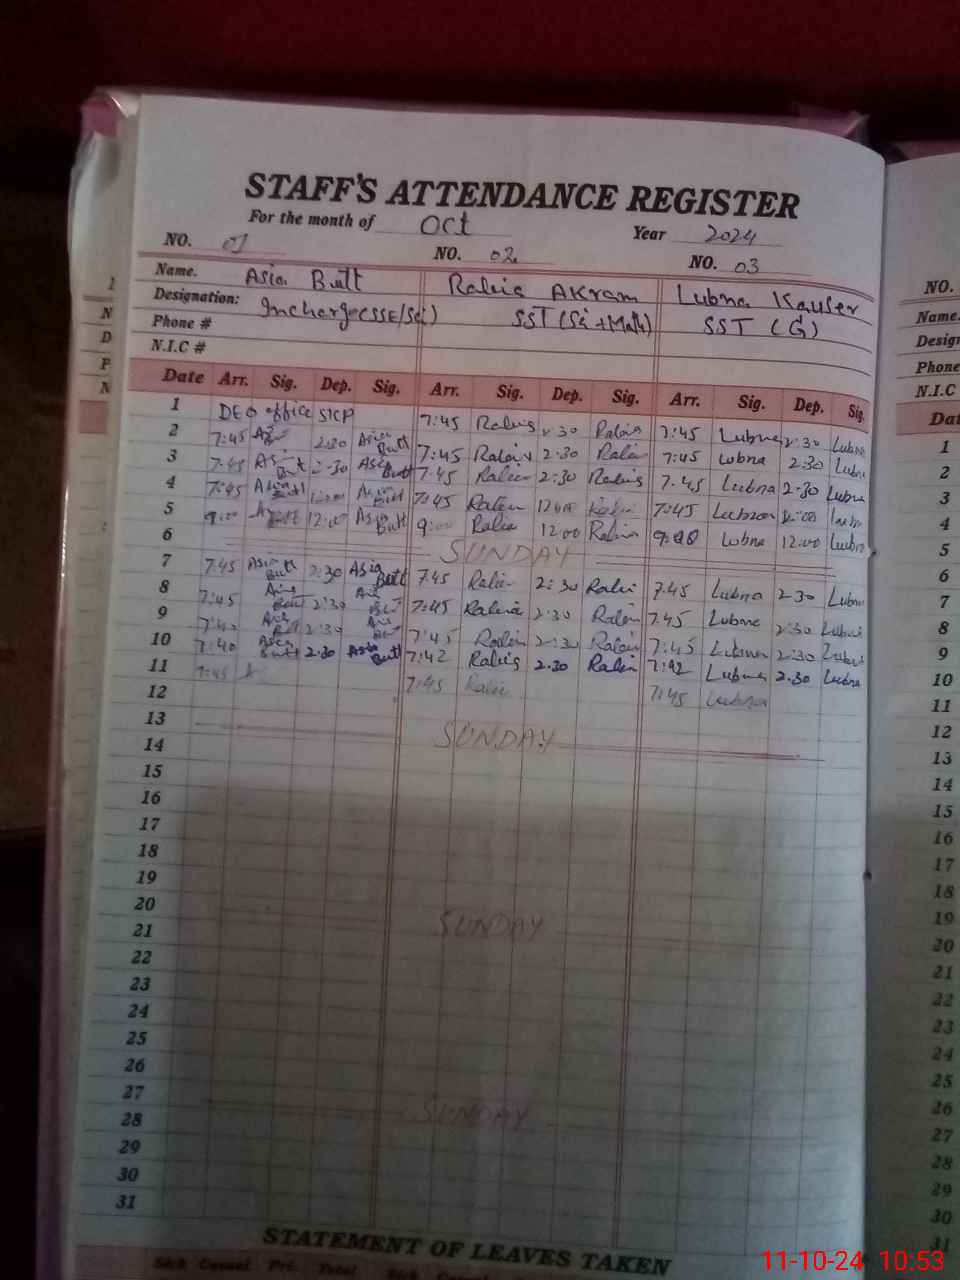 STAFF'S ATTENDANCE REGISTER
For the month of Oct Year 2024
NO. 01 NO. 02 NO. 03
Name. Asia Butt Rabia Akram Lubna Kauser
Designation: Incharge(SSE/Sci) SST (Sci+Math) SST (G)
Phone #
N.I.C #
Date Arr. Sig. Dep. Sig. Arr. Sig. Dep. Sig. Arr. Sig. Dep. Sig.
1 DEO office SKP 7:45 Rabia 2:30 Rabia 7:45 Lubna 2:30 Lubna
2 7:45 Asia Butt 2:30 Asia Butt 7:45 Rabia 2:30 Rabia 7:45 Lubna 2:30 Lubna
3 7:45 Asia Butt 2:30 Asia Butt 7:45 Rabia 2:30 Rabia 7:45 Lubna 2:30 Lubna
4 7:45 Asia Butt 12:00 Asia Butt 7:45 Rabia 12:00 Rabia 7:45 Lubna 12:00 Lubna
5 9:00 Asia Butt 12:00 Asia Butt 9:00 Rabia 12:00 Rabia 9:00 Lubna 12:00 Lubna
6 SUNDAY
7 7:45 Asia Butt 2:30 Asia Butt 7:45 Rabia 2:30 Rabia 7:45 Lubna 2:30 Lubna
8 7:45 Asia Butt 2:30 Asia Butt 7:45 Rabia 2:30 Rabia 7:45 Lubna 2:30 Lubna
9 7:40 Asia Butt 2:30 Asia Butt 7:45 Rabia 2:30 Rabia 7:45 Lubna 2:30 Lubna
10 7:40 Asia Butt 2:30 Asia Butt 7:42 Rabia 2:30 Rabia 7:42 Lubna 2:30 Lubna
11 7:45 7:45 Rabia 7:45 Lubna
12
13 SUNDAY
14
15
16
17
18
19
20 SUNDAY
21
22
23
24
25
26
27 SUNDAY
28
29
30
31
STATEMENT OF LEAVES TAKEN
Sick Casual Pri. Total Sick Casual
NO.
Name.
Phone
N.I.C
1
2
3
4
5
6
7
8
9
10
11
12
13
14
15
16
17
18
19
20
21
22
23
24
25
26
27
28
29
30
31
11-10-24 10:53